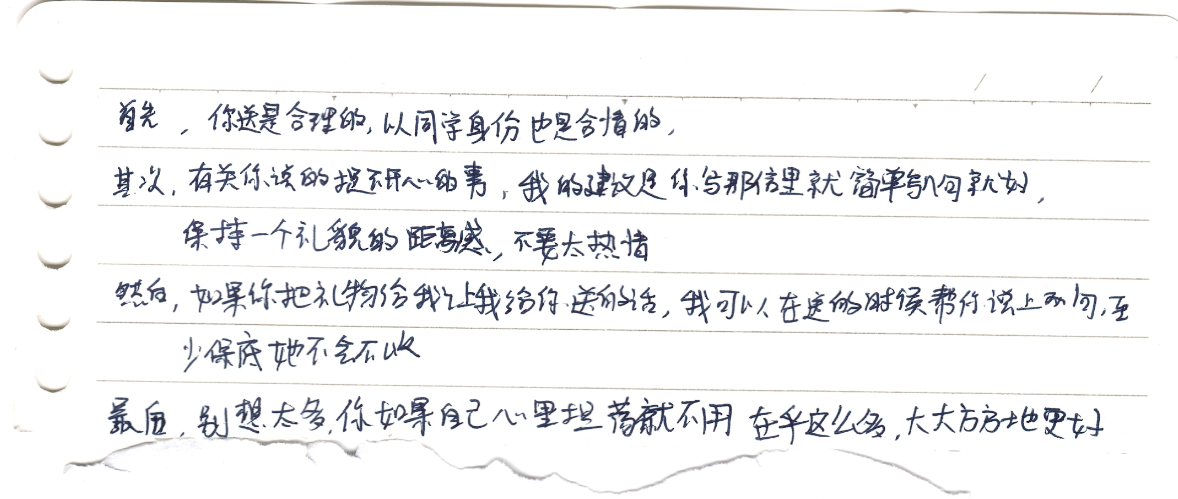 首先，你送是合理的，以同学身份也是合情的，
其次，有关你说的提不开心的事，我的建议是你写那信里就简单写几句就好，
保持一个礼貌的距离感，不要太热情
然后，如果你把礼物给我让我给你送的话，我可以在送的时候帮你说上两句，至
少保底她不会不收
最后，别想太多，你如果自己心里坦荡就不用在乎这么多，大大方方地更好